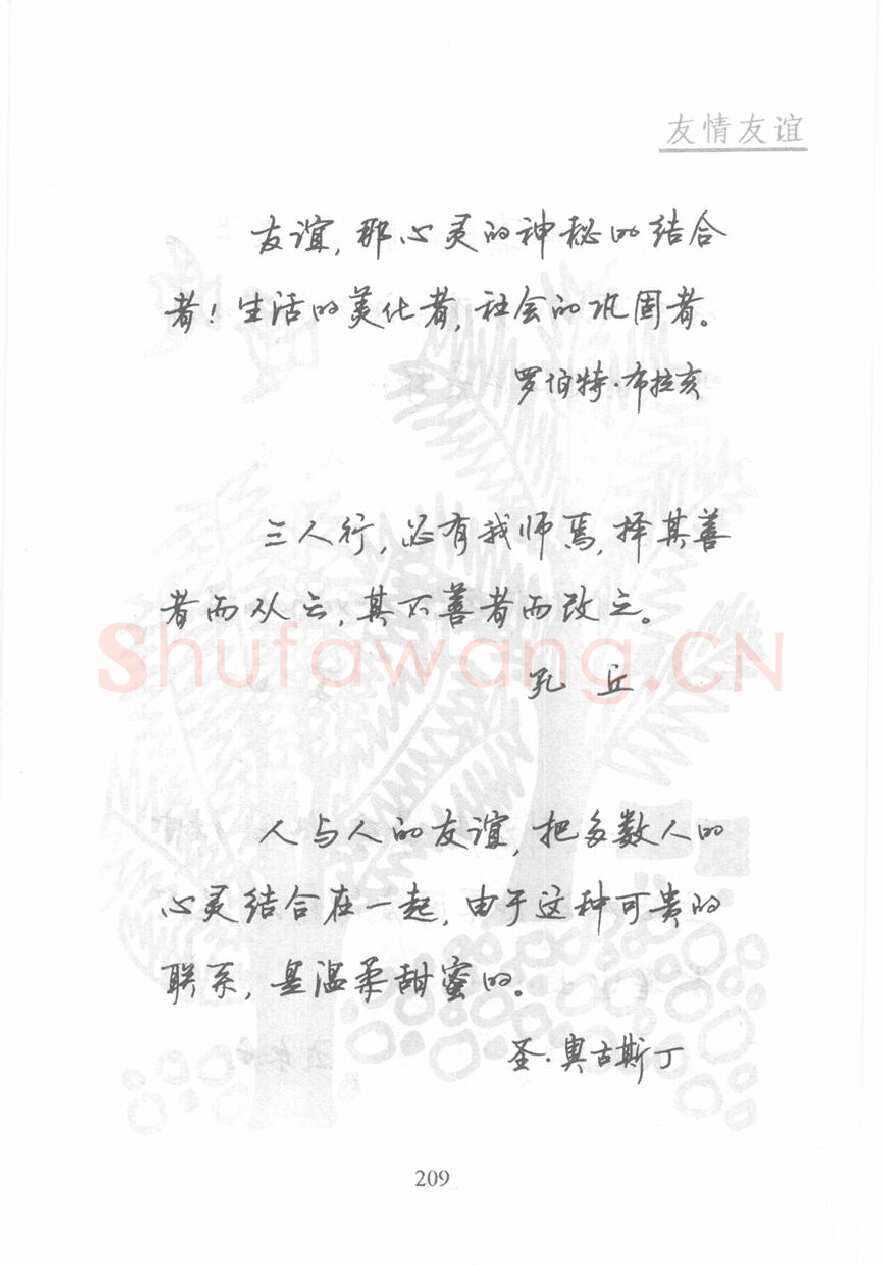 友情友谊
友谊，那心灵的神秘的结合
者！生活的美化者，社会的巩固者。
罗伯特·布拉亥
三人行，必有我师焉，择其善
者而从之，其不善者而改之。
Shufawang.CN
孔 丘
人与人的友谊，把多数人的
心灵结合在一起，由于这种可贵的
联系，是温柔甜蜜的。
圣·奥古斯丁
209